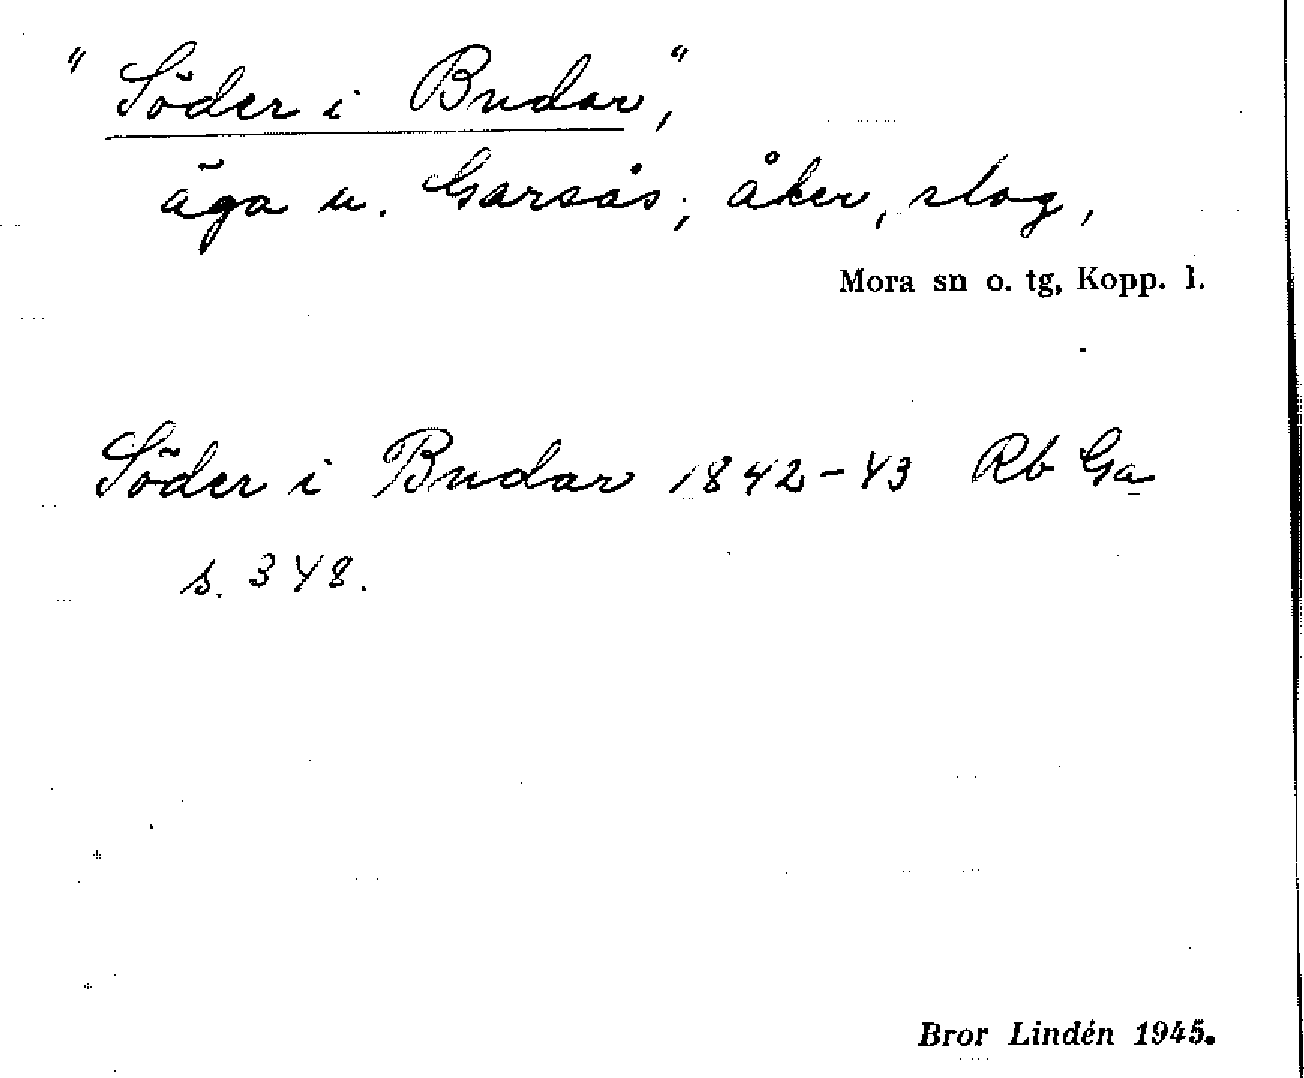 "Söder i Budar",
äga u. Garsås; åker, slog,
Mora sn o. tg, Kopp. l.
Söder i Budar 1842-43 Rb Ga
s. 348.
Bror Lindén 1945.